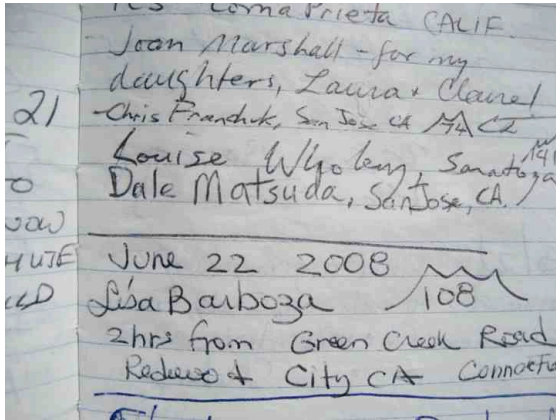 Loma Prieta CALIF.
Joan Marshall - for my
daughters, Laura & Claire!
21
-Chris Franchuk, San Jose CA
Louise Whoberry, Saratoga
Dale Matsuda, San Jose, CA.
June 22 2008
Lisa Barboza 108
2hrs from Green Creek Road
Redwood City CA